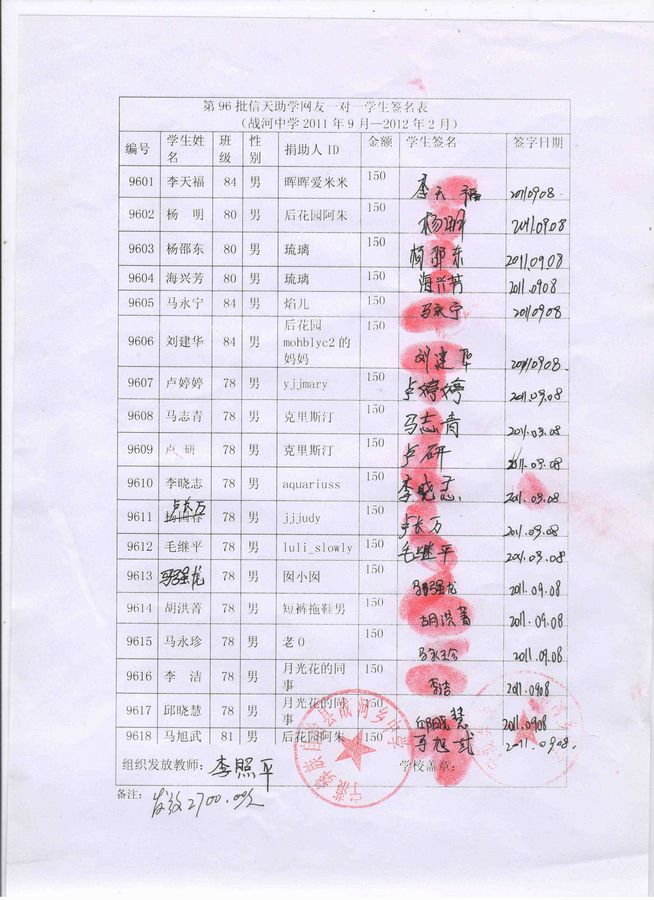 第96批信天助学网友一对一学生签名表
（战河中学2011年9月—2012年2月）
编号 学生姓名 班级 性别 捐助人ID 金额 学生签名 签字日期
9601 李天福 84 男 晖晖爱米米 150 李天福 2011.09.08.
9602 杨 明 80 男 后花园阿朱 150 杨明 2011.09.08
9603 杨邵东 80 男 琉璃 150 杨邵东 2011.09.08
9604 海兴芳 80 男 琉璃 150 海兴芳 2011.09.08
9605 马永宁 84 男 焰儿 150 马永宁 2011.09.08
9606 刘建华 84 男 后花园mohblyc2的妈妈 150 刘建华 2011.09.08
9607 卢婷婷 78 男 yjjmary 150 卢婷婷 2011.09.08
9608 马志青 78 男 克里斯汀 150 马志青 2011.09.08
9609 卢 研 78 男 克里斯汀 150 卢研 2011.09.08
9610 李晓志 78 男 aquariuss 150 李晓志 2011.09.08
9611 卢长万 78 男 jjjudy 150 卢长万 2011.09.08
9612 毛继平 78 男 luli_slowly 150 毛继平 2011.09.08
9613 马强龙 78 男 囡小囡 150 马强龙 2011.09.08
9614 胡洪菁 78 男 短裤拖鞋男 150 胡洪菁 2011.09.08
9615 马永珍 78 男 老O 150 马永珍 2011.09.08
9616 李 洁 78 男 月光花的同事 150 李洁 2011.0908
9617 邱晓慧 78 男 月光花的同事 150 邱晓慧 2011.0908
9618 马旭武 81 男 后花园阿朱 150 马旭武 2011.0908.
组织发放教师：李照平 学校盖章：
备注： 发放2700.00元